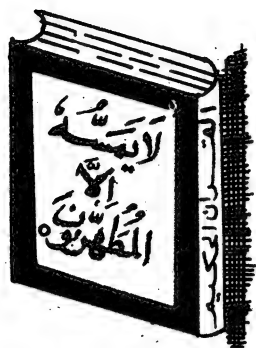 لَا يَمَسُّهُ
اِلَّا
الْمُطَهَّرُوْنَ
القرآن الحكيم